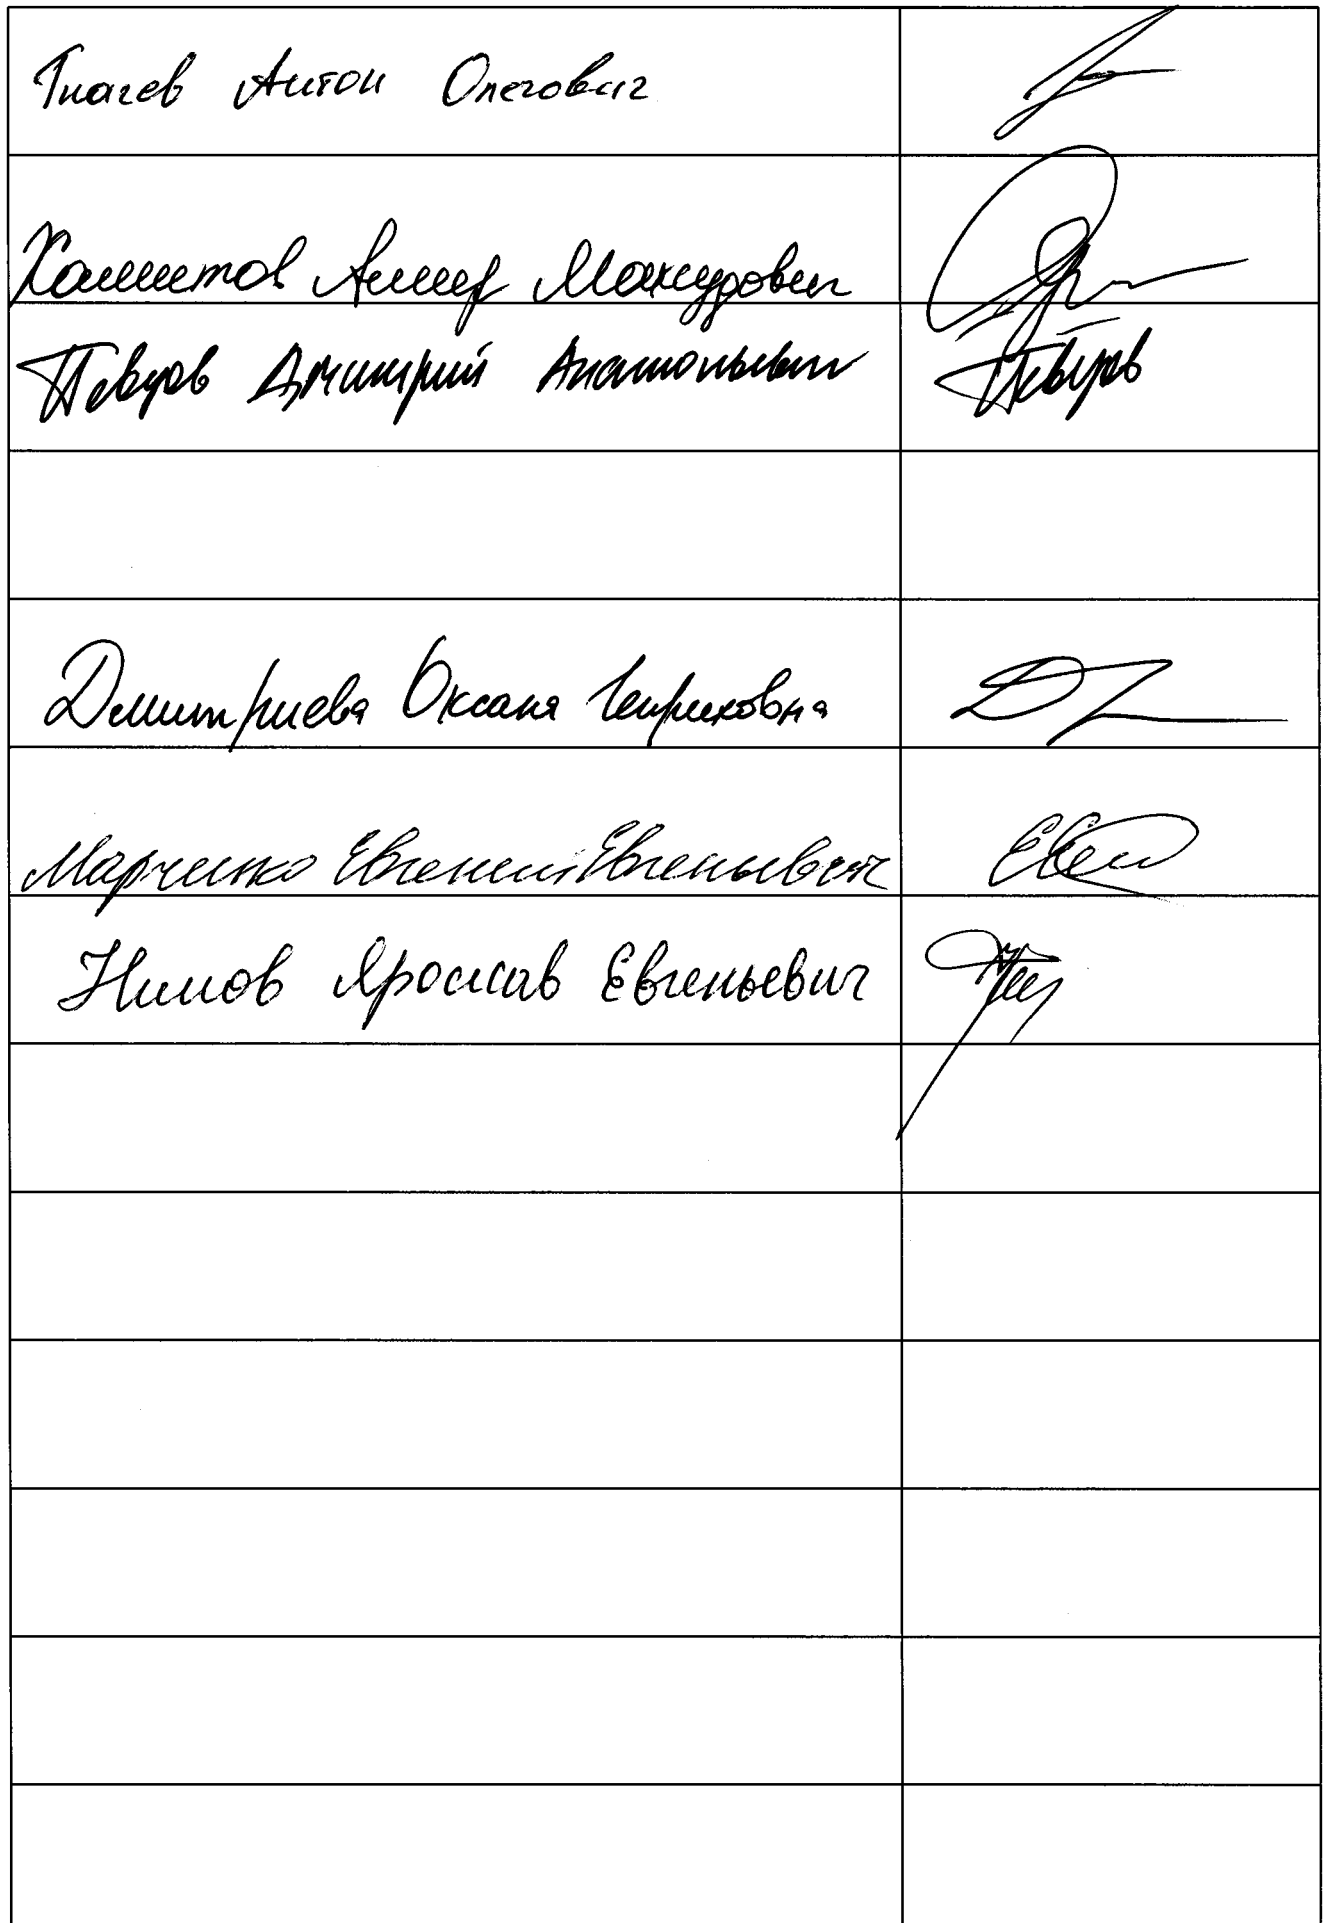 Ткачев Антон Олегович
Хамитов Амир Махсудович
Певцов Дмитрий Анатольевич Певцов
Дмитриева Оксана Генриховна
Марченко Евгений Евгеньевич
Нилов Ярослав Евгеньевич